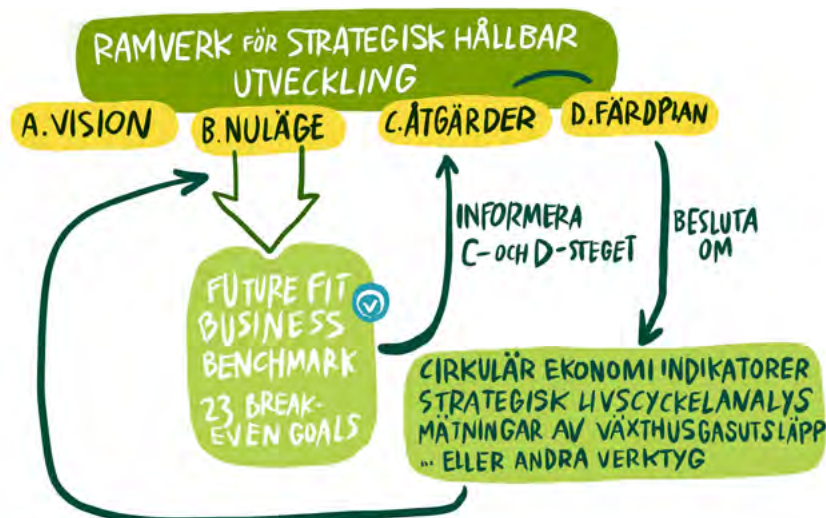 RAMVERK FÖR STRATEGISK HÅLLBAR
UTVECKLING
A. VISION
B. NULÄGE
C. ÅTGÄRDER
D. FÄRDPLAN
INFORMERA
C- OCH D-STEGET
BESLUTA
OM
FUTURE FIT
BUSINESS
BENCHMARK
23 BREAK-
EVEN GOALS
CIRKULÄR EKONOMI INDIKATORER
STRATEGISK LIVSCYCKELANALYS
MÄTNINGAR AV VÄXTHUSGASUTSLÄPP
... ELLER ANDRA VERKTYG